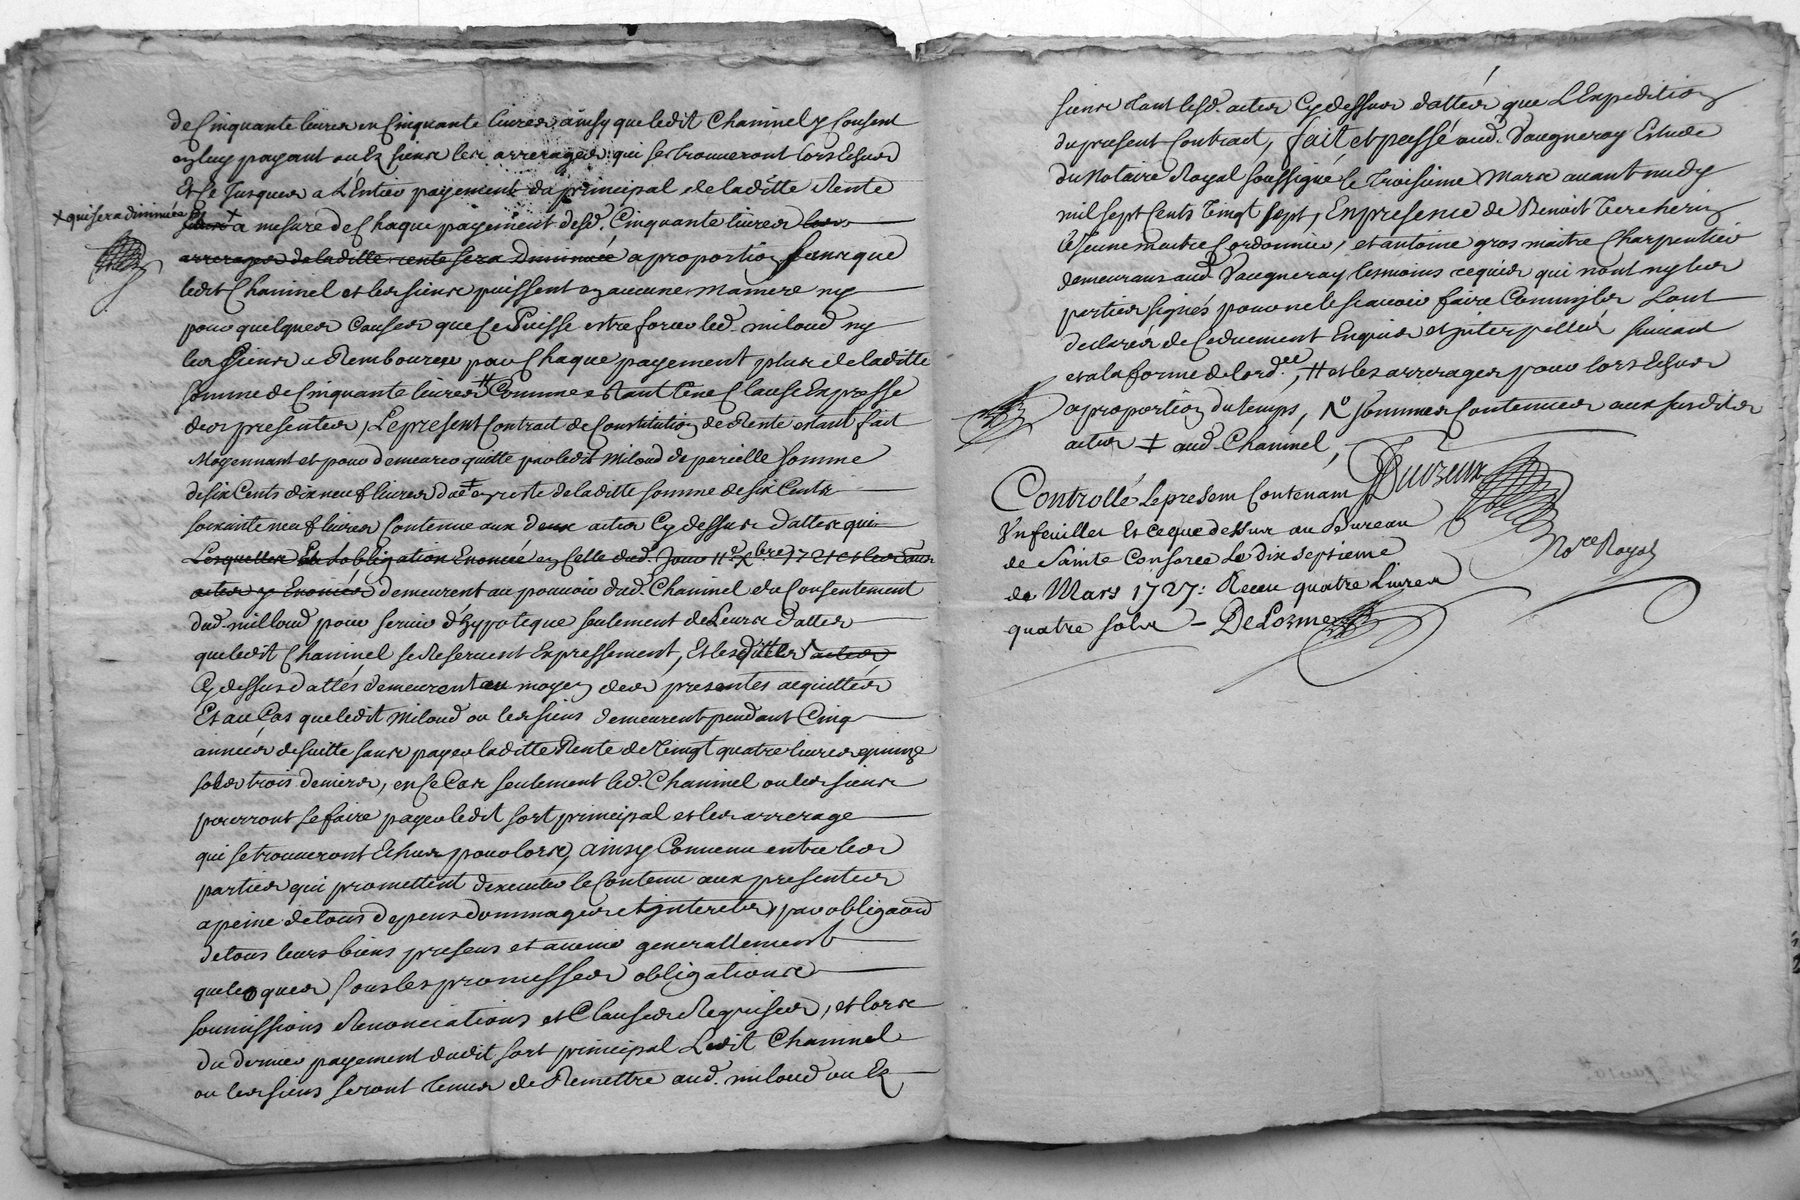 de Cinquante livres en Cinquante livres ainsy que ledit Chaninel y Consent
en luy payant ou Ez siens les arrerages qui se trouveront lors Echus
Et ce Jusques a L'Entier payement du principal de laditte Rente
x qui sera diminuée
x a mesure de Chaque payement desd. Cinquante livres lors
arrerages de laditte rente sera Diminuée a proportion sans que
ledit Chaninel et les siens puissent en aucune maniere ny
pour quelques Causes que ce Puisse estre forcer led. miloud ny
les siens a Rembourser par Chaque payement plus de laditte
somme de Cinquante livres # Comme estant Une Clause Expresse
des presentes, Le present Contrait de Constitution de Rente estant fait
Moyennant et pour demeurer quitte par ledit Miloud de pareille somme
de six Cents dix neuf livres düe en reste de laditte somme de six Cents
soixante neuf livres Contenue aux deux actes Cy dessus dattes qui
Lesquelles Et L'obligation Enoncée en Celle dud. Jour 11e Xbre 1721 et les deux
actes y Enoncés demeurent au pouvoir dud. Chaninel du Consentement
dud. milloud pour servir d'hypoteque seulement de Leurs dattes
que ledit Chaninel se Reservent Expressement, Et lesdittes actes
Cy dessus dattés demeurent au moyen des presentes acquittés
Et au Cas que ledit Miloud ou les siens demeurent pendant Cinq
années de suitte sans payer laditte Rente de Vingt quatre livres quinze
sols trois deniers, en ce Cas seulement led. Chaninel ou les siens
pourront se faire payer ledit sort principal et les arrerage
qui se trouveront Echus pour lors, ainsy Convenu entre les
parties qui promettent d'executer le Contenu aux presentes
a peine de tous depens dommages et interets, par obligaon
de tous leurs biens presens et avenir generallement
quelcoques sous les promesses obligations
soumissions Renonciations et Clauses Requises, et lors
du dernier payement dudit sort principal Ledit Chaninel
ou les siens seront Tenus de Remettre aud. miloud ou Ez
siens tant lesd. actes Cy dessus dattés que L'Expedition
du present Contract, fait et passé aud. Vaugneray Estude
du Notaire Royal soussigné le Troisieme Mars avant midy
mil sept Cents Vingt sept, En presence de Benoit Tercherin
le Jeune maitre Cordonnier, et antoine gros maitre Charpentier
demeurans aud. Vaugneray tesmoins requis qui n'ont ny les
parties signés pour ne le scavoir faire Comm'ils L'ont
declarés de ce düement Enquis et interpellés suivant
et a la forme de l'ord.ce, # et les arrerages pour lors Echus
a proportion du temps, sommes Contenues aux susdits
actes ‡ aud. Chaninel,
Controllé le presem Contenam
Un feuillet Et ce que dessus au Bureau
de Sainte Consorce Le dix septieme
de Mars 1727: Receu quatre Livres
quatre sols - DeLorme
Nore Royal